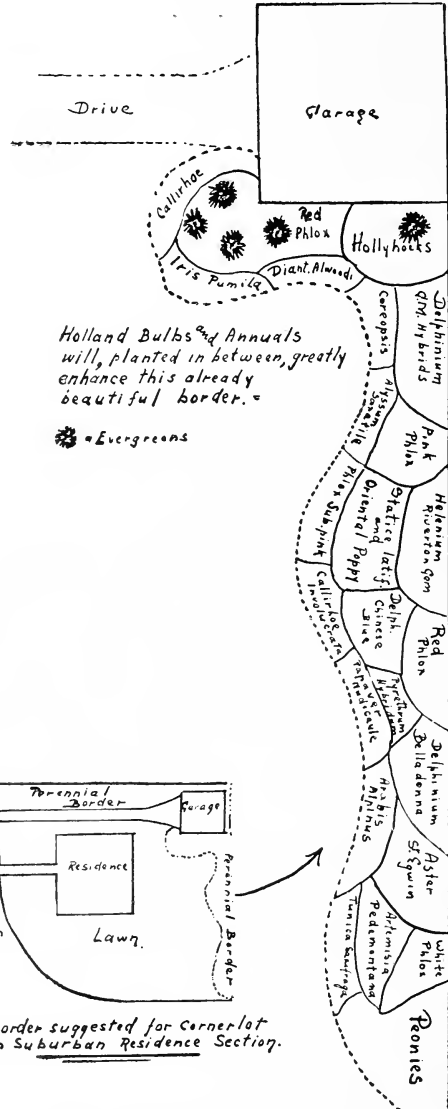 Drive
Garage
Callirhoe
Red
Phlox
Hollyhocks
Iris Pumila
Diant. Alwoodi
Coreopsis
Delphinium
Q.M. Hybrids
Holland Bulbs and Annuals
will, planted in between, greatly
enhance this already
beautiful border. =
= Evergreens
Alyssum
Saxatile
Pink
Phlox
Phlox Sub. pink
Statice latif.
and
Oriental Poppy
Helenium
Riverton Gem
Callirhoe
Involucrata
Delph.
Chinese
Blue
Red
Phlox
Papaver
Nudicaule
Pyrethrum
Hybridum
Delphinium
Belladonna
Arabis
Alpinus
Aster
St. Egwin
Tunica Saxifraga
Artemisia
Pedemontana
White
Phlox
Peonies
Perennial
Border
Garage
Residence
Lawn.
Perennial Border
order suggested for Cornerlot
Suburban Residence Section.